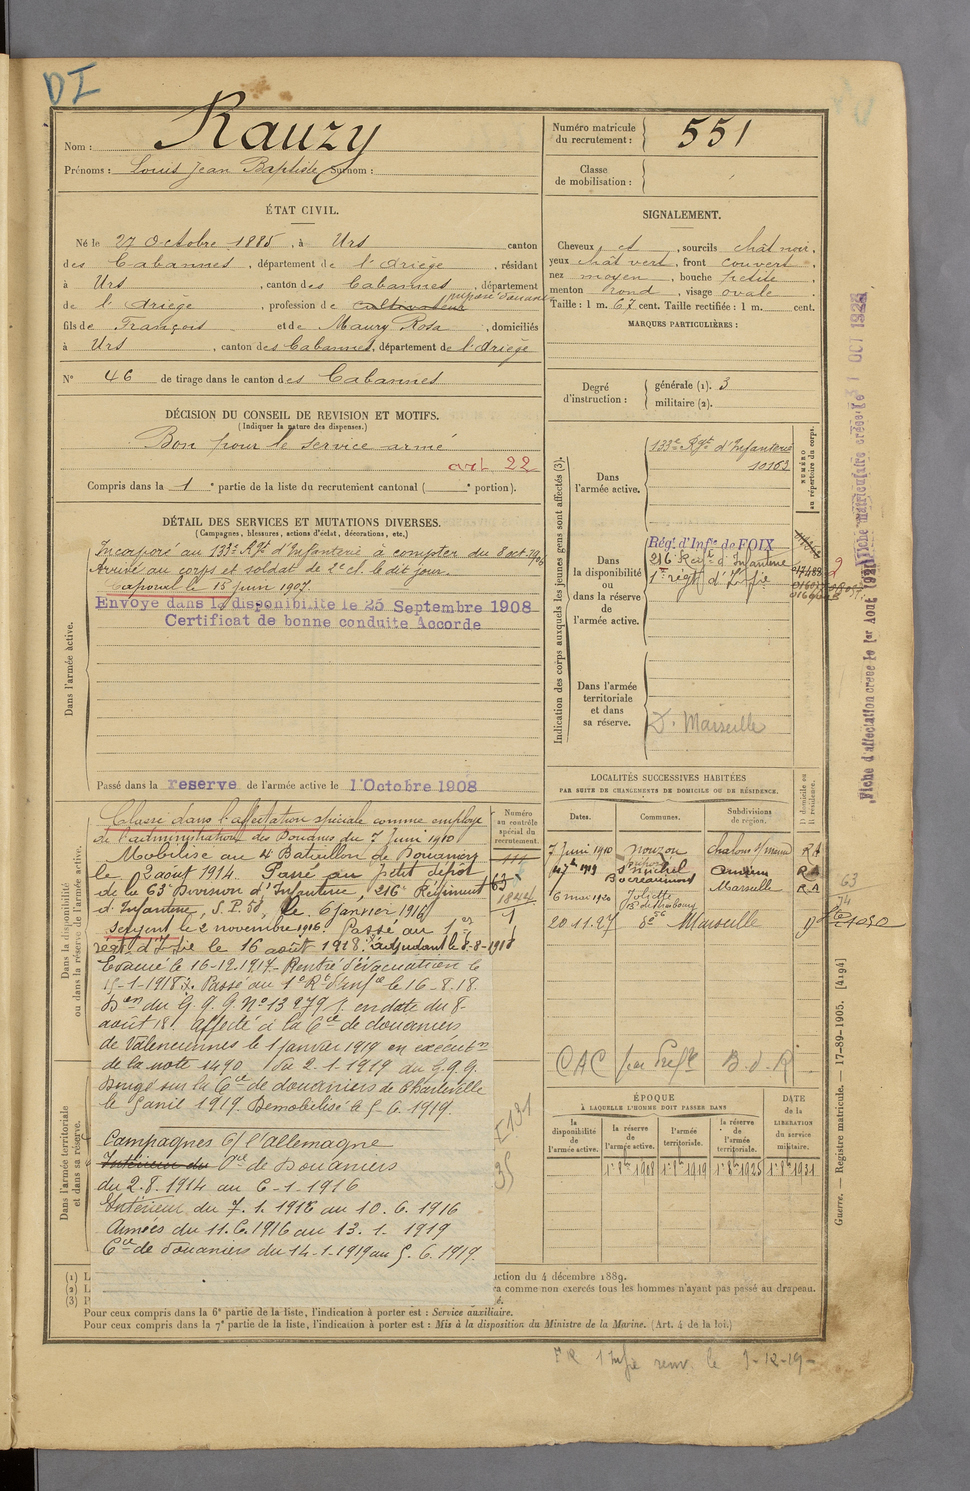 DI
Nom : Rauzy
Prénoms : Louis Jean Baptiste Surnom :
Numéro matricule du recrutement : 551
Classe de mobilisation :
ÉTAT CIVIL.
Né le 27 Octobre 1885, à Urs canton
des Cabannes, département de l'Ariège, résidant
à Urs, canton des Cabannes, département
de l'Ariège, profession de cultivateur préposé douanes
fils de François et de Maury Rosa, domiciliés
à Urs, canton des Cabannes, département de l'Ariège
N° 46 de tirage dans le canton des Cabannes
SIGNALEMENT.
Cheveux et, sourcils chât noir,
yeux chât vert, front couvert,
nez moyen, bouche petite,
menton rond, visage ovale
Taille : 1 m. 67 cent. Taille rectifiée : 1 m. cent.
MARQUES PARTICULIÈRES :
Degré d'instruction : générale (1). 3
militaire (2).
DÉCISION DU CONSEIL DE REVISION ET MOTIFS.
(Indiquer la nature des dispenses.)
Bon pour le service armé
art 22
Compris dans la 1e partie de la liste du recrutement cantonal ( e portion).
DÉTAIL DES SERVICES ET MUTATIONS DIVERSES.
(Campagnes, blessures, actions d'éclat, décorations, etc.)
Dans l'armée active.
Incorporé au 133e Rgt d'Infanterie à compter du 8 oct 1906
Arrivé au corps et soldat de 2e cl. le dit jour.
Caporal le 15 juin 1907.
Envoyé dans la disponibilité le 25 Septembre 1908
Certificat de bonne conduite Accordé
Passé dans la reserve de l'armée active le 1er Octobre 1908
Dans la disponibilité ou dans la réserve de l'armée active.
Classé dans l'affectation spéciale comme employé
de l'administration des Douanes du 7 Juin 1910
Mobilisé au 4 Bataillon de Douaniers
le 2 août 1914. Passé au petit dépôt
de la 63e Division d'Infanterie, 216e Régiment
d'Infanterie, S.P. 58, le 6 janvier 1916
Sergent le 2 novembre 1916. Passé au 1er
régt d'Ifie le 16 août 1918. adjudant le 8-8-1918
Evacué le 16-12-1917 - Rentré d'évacuation le
5-1-1918. Passé au 1e Rt d'Infie le 16-8-18.
Don du G.Q.G N° 13979 en date du 8-
août 18. Affecté à la Cie de douaniers
de Valenciennes le 1 janvier 1919 en exécutn
de la note 1490 du 2-1-1919 du G.Q.G.
Dirigé sur la Cie de douaniers de Charleville
le 5 avril 1919. Démobilisé le 5.6.1919.
Dans l'armée territoriale et dans sa réserve.
Campagnes C/ l'Allemagne
Intérieur du Cie de Douaniers
du 2.8.1914 au 6-1-1916
Intérieur du 7.1.1916 au 10.6.1916
Armées du 11.6.1916 au 13.1.1919
Cie de douaniers du 14-1-1919 au 5.6.1919.
Numéro au contrôle spécial du recrutement.
63
1844
Indication des corps auxquels les jeunes gens sont affectés (3).
NUMÉRO au répertoire du corps.
Dans l'armée active.
133e Rgt d'Infanterie
10162
Dans la disponibilité ou dans la réserve de l'armée active.
Rég. d'Infie de FOIX
216 Régt d'Infanterie
1er régt d'Ifie
Dans l'armée territoriale et dans sa réserve.
D. Marseille
LOCALITÉS SUCCESSIVES HABITÉES
PAR SUITE DE CHANGEMENTS DE DOMICILE OU DE RÉSIDENCE.
Dates. Communes. Subdivisions de région. D domicile ou R résidence.
7 Juin 1910 Nouzon Chalons s/ marne RA
1913 St Michel Amiens RA
6 mai 1920 Joliette Marseille RA
Bd de Strasbourg
20.11.27 do 56 Marseille
CAC par Prefre B.d.R
ÉPOQUE
À LAQUELLE L'HOMME DOIT PASSER DANS
DATE de la LIBÉRATION du service militaire.
la disponibilité de l'armée active.
la réserve de l'armée active.
l'armée territoriale.
la réserve de l'armée territoriale.
1er 8bre 1908 1er 8bre 1919 1er 8bre 1925 1er 8bre 1931
Fiche d'affectation créée le 1er Aout 1921
Fiche matriculaire créée le OCT 1925
Guerre. — Registre matricule. — 17-89-1905. [4194]
(1) L
(2) L
(3) P
uction du 4 décembre 1889.
ra comme non exercés tous les hommes n'ayant pas passé au drapeau.
é.
Pour ceux compris dans la 6e partie de la liste, l'indication à porter est : Service auxiliaire.
Pour ceux compris dans la 7e partie de la liste, l'indication à porter est : Mis à la disposition du Ministre de la Marine. (Art. 4 de la loi.)
FR 1 Infie renv. le 9-12-19-